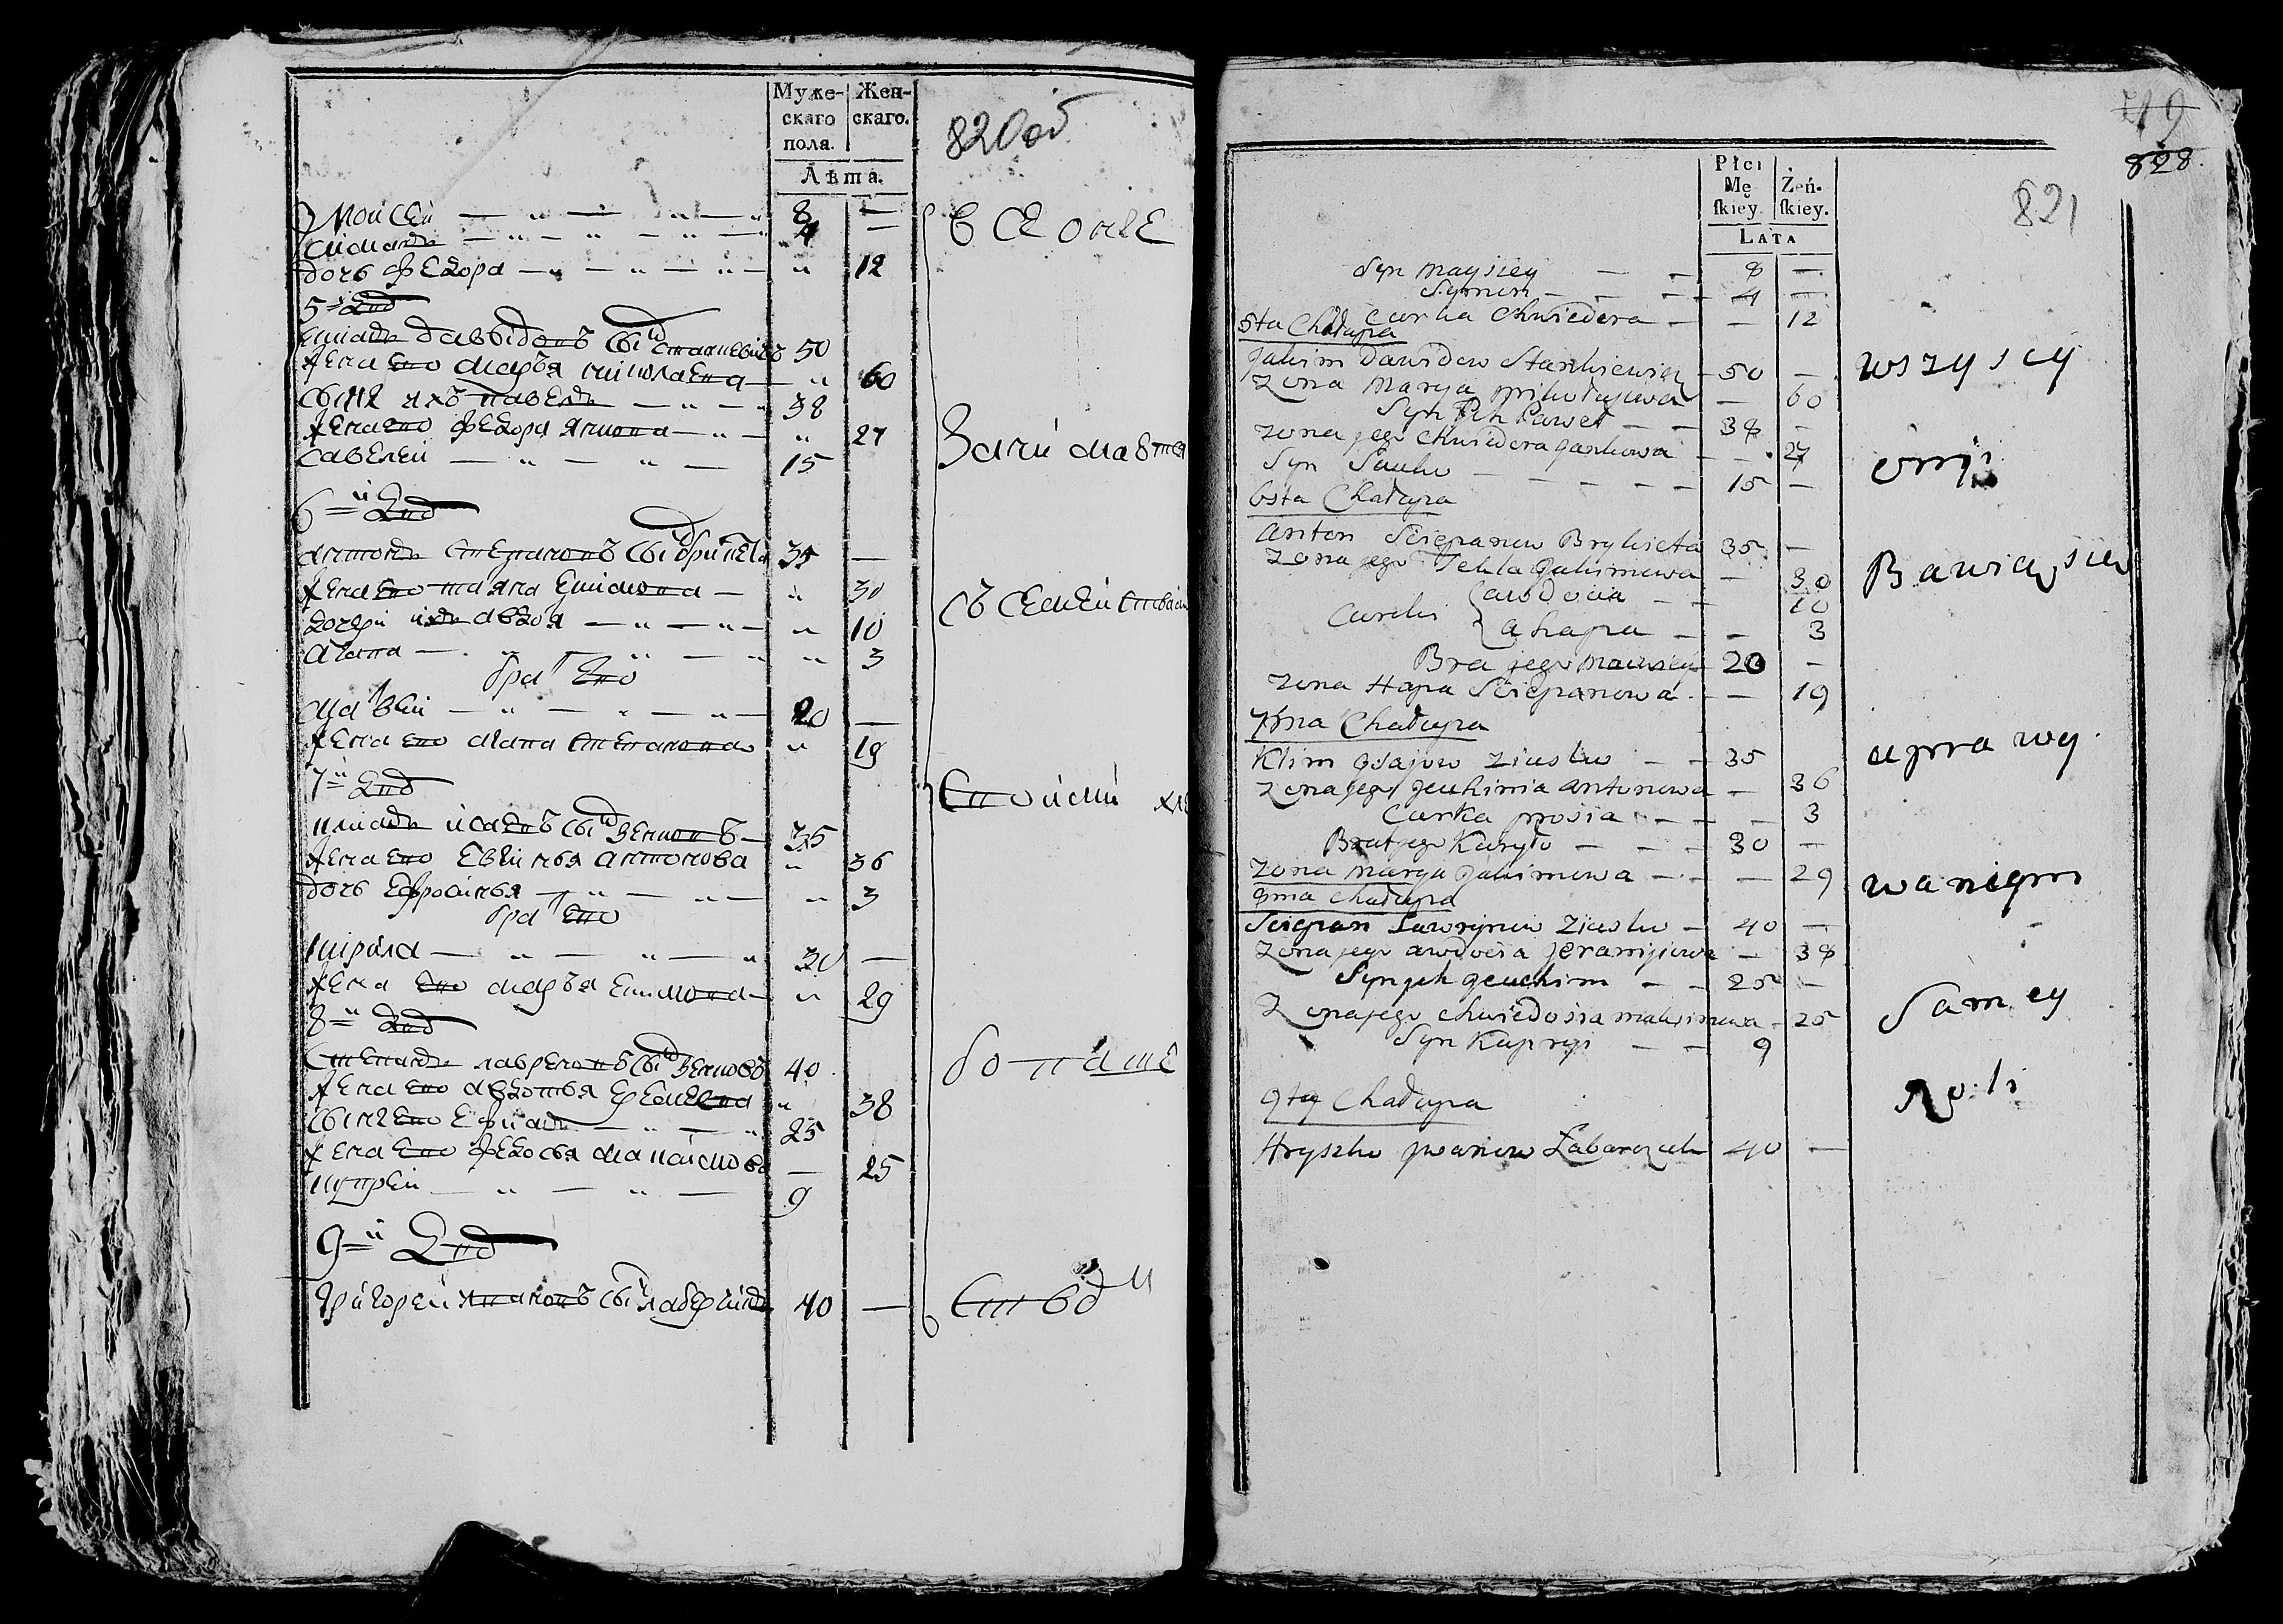 Муже-
скаго
пола.
Жен-
скаго.
Лѣта.
820об
Моисей — „ — „ — „ 8 —
Симонъ — „ — „ — „ 4 —
дочь Федора — „ — „ — „ — „ 12
5-й Дво
Екимъ Давыдовъ сынъ Станкевичъ 50
жена ево Марья Николаева — „ 60
сынъ ихъ Павелъ — „ — „ 38
жена ево Федора Якимова — „ — „ 27
Савелей — „ — „ — 15
6-й Дво
Антонъ Степановъ сынъ Брикета 35 —
жена ево Татьяна Екимова — „ 30
дочери ихъ Авдотья — „ — „ — „ 10
Агапа — „ — „ — „ „ 3
братъ Ево
Матвей — „ — „ — „ — 20 —
жена ево Агапа Степанова „ 19
7-й Дво
Климъ Исаевъ сынъ Зенковъ — 35
жена ево Евгинья Антонова „ 36
дочь Ефросинья — „ — „ — „ 3
братъ Ево
Кирила — „ — „ — „ 30 —
жена Ево Марья Екимова — „ 29
8-й Дво
Степанъ Лавреновъ сынъ Зенковъ 40
жена ево Авдотья Еремеева „ 38
сынъ ево Ефимъ — „ — „ 25
жена Ево Федосья Максимова — 25
Купрей — „ — „ — 9
9-й Дво
Григорей Ивановъ сынъ 40 —
всѣ оные
Занимаютса
съ семействами
своими
Płci
Mę
ſkiey.
Żeń-
ſkiey.
LATA
828.
821
Syn Maysiey — — 8 —
Symon — — — 4 —
Curka Chwiedora — — 12
5ta Chałupa
Jakim Dawidow Stankiewicz — 50 —
Zona Marya Mikołajewa — 60
Syn Jch Paweł — — 38 —
Zona jego Chwiedora Jankowa — — 27
Syn Sawko — — — — — 15 —
6sta Chałupa
Anton Sciepanow Brykieta 35 —
Zona jego Tekla Jakimowa — 30
Curki { Awdocia — — 10
Ahapa — — 3
Bra jego Mawsiey 20 —
Zona Hapa Sciepanowa — — 19
7ma Chałupa
Klim Jsajow Zienko — — 35
Zona jego Jeuhinia Antonowa — 36
Curka Prosia — — — 3
Brat jego Karyło — — — 30 —
Zona Marya Jakimowa — — — 29
8ma Chałupa
Sciepan Ławrynow Zienko — 40 —
Zona jego Awdocia Jeramijowa — 38
Syn jch Jeuchim — — 25 —
Zona jego Chwiedosia Maksimowa — 25
Syn Kupryi — — 9
9ta Chałupa
Hryszko Jwanow Łabarczuk 40 —
wszyscy
onji
Bawią sie
uprawą
waniem
Samey
Roli